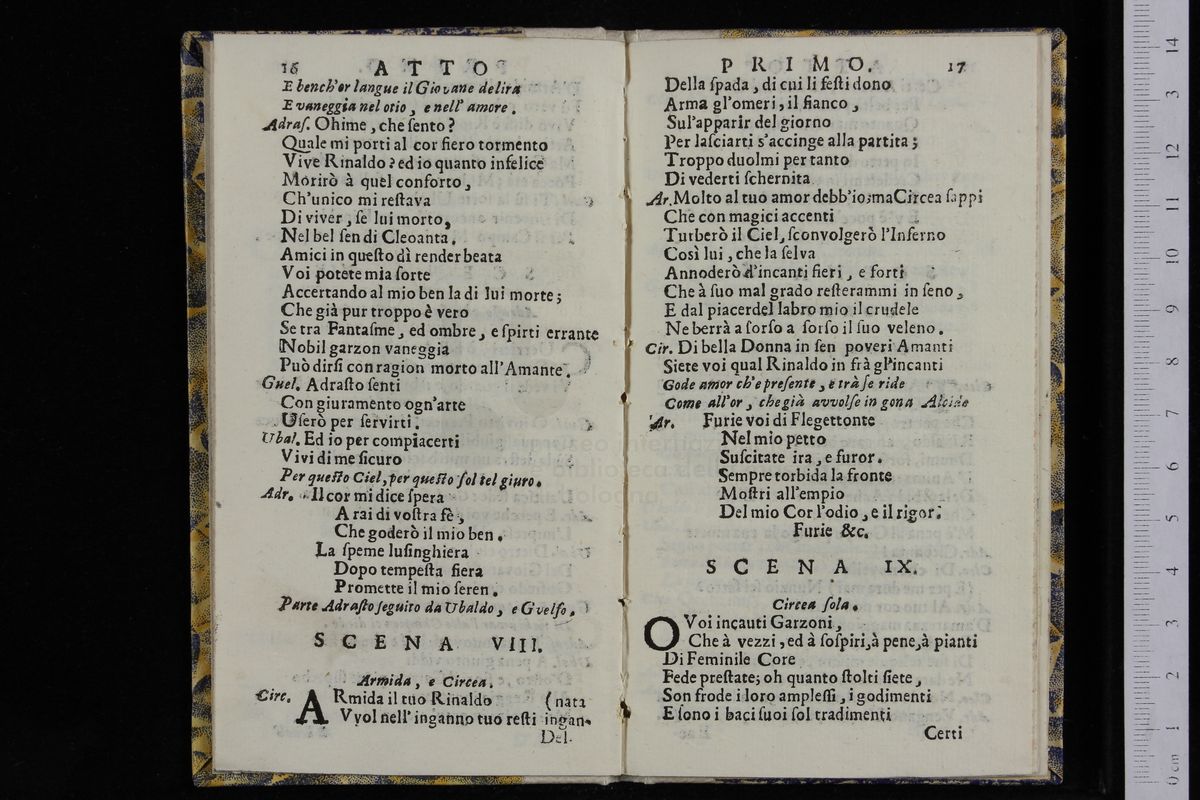 16 ATTO
E bench'or langue il Giovane delira
E vaneggia nel otio, e nell' amore.
Adras. Ohime, che ſento?
Quale mi porti al cor fiero tormento
Vive Rinaldo? ed io quanto infelice
Morirò à quel conforto,
Ch'unico mi reſtava
Di viver, ſe lui morto,
Nel bel ſen di Cleoanta.
Amici in queſto dì render beata
Voi potete mia ſorte
Accertando al mio ben la di lui morte;
Che già pur troppo è vero
Se tra Fantaſme, ed ombre, e ſpirti errante
Nobil garzon vaneggia
Può dirſi con ragion morto all'Amante.
Guel. Adraſto ſenti
Con giuramento ogn'arte
Uſerò per ſervirti.
Ubal. Ed io per compiacerti
Vivi di me ſicuro
Per queſto Ciel, per queſto ſol tel giuro.
Adr. Il cor mi dice ſpera
A rai di voſtra fè,
Che goderò il mio ben.
La ſpeme luſinghiera
Dopo tempeſta fiera
Promette il mio ſeren.
Parte Adraſto ſeguito da Ubaldo, e Gvelfo.
SCENA VIII.
Armida, e Circea.
Circ. ARmida il tuo Rinaldo (nata
Vvol nell' inganno tuo reſti ingan-
Del-
PRIMO. 17
Della ſpada, di cui li feſti dono
Arma gl'omeri, il fianco,
Sul'apparir del giorno
Per laſciarti s'accinge alla partita;
Troppo duolmi per tanto
Di vederti ſchernita
Ar. Molto al tuo amor debb'io; ma Circea ſappi
Che con magici accenti
Turberò il Ciel, ſconvolgerò l'Inferno
Così lui, che la ſelva
Annoderò d'incanti fieri, e forti
Che à ſuo mal grado reſterammi in ſeno,
E dal piacer del labro mio il crudele
Ne berrà a ſorſo a ſorſo il ſuo veleno.
Cir. Di bella Donna in ſen poveri Amanti
Siete voi qual Rinaldo in frà gl'incanti
Gode amor ch'e preſente, e trà ſe ride
Come all'or, che già avvolſe in gona Alcide
Ar. Furie voi di Flegettonte
Nel mio petto
Suſcitate ira, e furor.
Sempre torbida la fronte
Moſtri all'empio
Del mio Cor l'odio, e il rigor.
Furie &c.
SCENA IX.
Circea ſola.
O Voi incauti Garzoni,
Che à vezzi, ed à ſoſpiri, à pene, à pianti
Di Feminile Core
Fede preſtate; oh quanto ſtolti ſiete,
Son frode i loro ampleſſi, i godimenti
E ſono i baci ſuoi ſol tradimenti
Certi